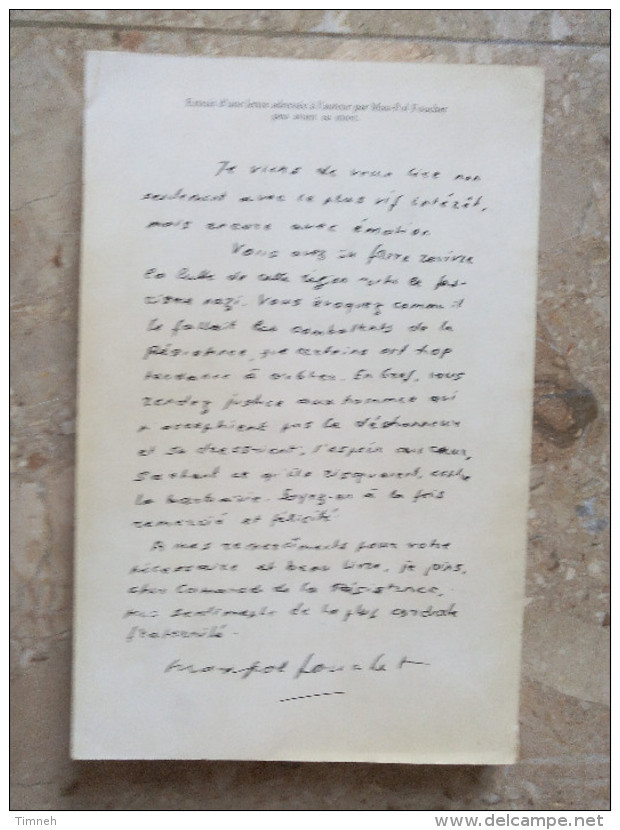 Extrait d'une lettre adressée à l'auteur par Max-Pol Fouchet
peu avant sa mort.
Je viens de vous lire non
seulement avec le plus vif intérêt,
mais encore avec émotion.
Vous avez su faire revivre
la lutte de cette région contre le fas-
cisme nazi. Vous évoquez comme il
le fallait les combattants de la
Résistance, que certains ont trop
tendance à oublier. En bref, vous
rendez justice aux hommes qui
n'acceptaient pas le déshonneur
et se dressaient, l'espoir au cœur,
sachant ce qu'ils risquaient, contre
la barbarie. Soyez-en à la fois
remercié et félicité.
A mes remerciements pour votre
nécessaire et beau livre, je joins,
cher Camarade de la Résistance,
mes sentiments de la plus cordiale
fraternité.
Max-Pol Fouchet
Timneh
www.delcampe.net